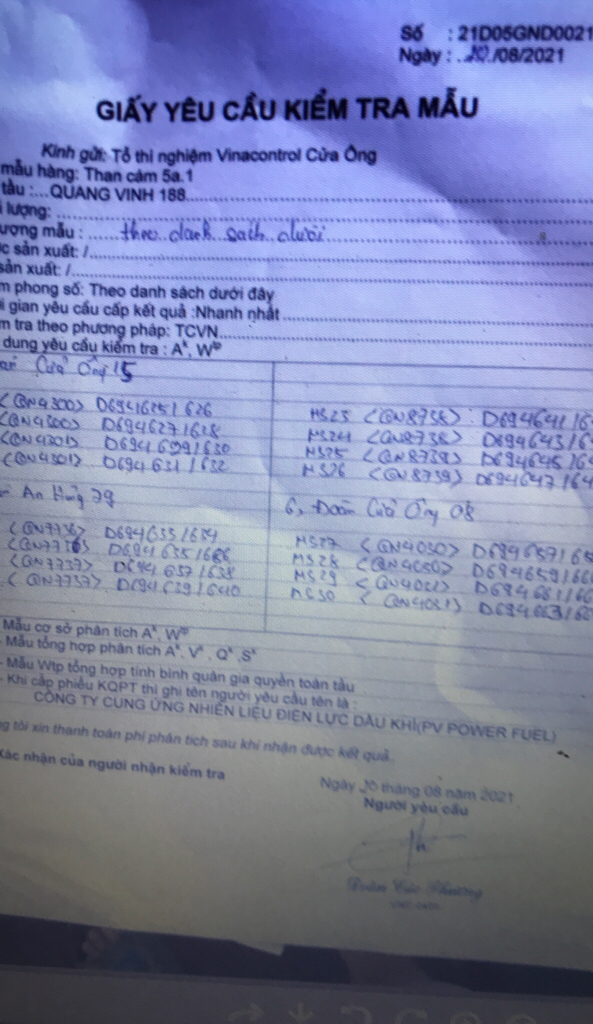 Số : 21D05GND0021
Ngày : 20/08/2021
GIẤY YÊU CẦU KIỂM TRA MẪU
Kính gửi: Tổ thí nghiệm Vinacontrol Cửa Ông
mẫu hàng: Than cám 5a.1
tầu :...QUANG VINH 188
lượng:
ượng mẫu : theo danh sách dưới
sản xuất: /
sản xuất: /
m phong số: Theo danh sách dưới đây
gian yêu cầu cấp kết quả :Nhanh nhất
m tra theo phương pháp: TCVN
dung yêu cầu kiểm tra : Aᵏ, Wᵗᵖ
Cửa Ông 15
<QN4300> D6941625/626
<QN4300> D694627/628
<QN4301> D694629/630
<QN4301> D694631/632
MS23 <QN8738> : D694641/64
MS24 <QN8738> : D694643/64
MS25 <QN8739> D694645/64
MS26 <QN8739> D694647/64
An Hưng 79
<QN7736> D694633/634
<QN7736> D694635/636
<QN7737> D694637/638
<QN7737> D694639/640
6, Đoàn Cửa Ông 08
MS27 <QN4050> D694657/65
MS28 <QN4050> D694659/66
MS29 D694661/66
MS30 D694663/66
Mẫu cơ sở phân tích Aᵏ, Wᵗᵖ
- Mẫu tổng hợp phân tích Aᵏ, Vᵏ, Qᵏ, Sᵏ
- Mẫu Wtp tổng hợp tính bình quân gia quyền toàn tầu
- Khi cấp phiếu KQPT thì ghi tên người yêu cầu tên là :
CÔNG TY CUNG ỨNG NHIÊN LIỆU ĐIỆN LỰC DẦU KHÍ(PV POWER FUEL)
g tôi xin thanh toán phí phân tích sau khi nhận được kết quả.
Xác nhận của người nhận kiểm tra
Ngày 20 tháng 08 năm 2021
Người yêu cầu